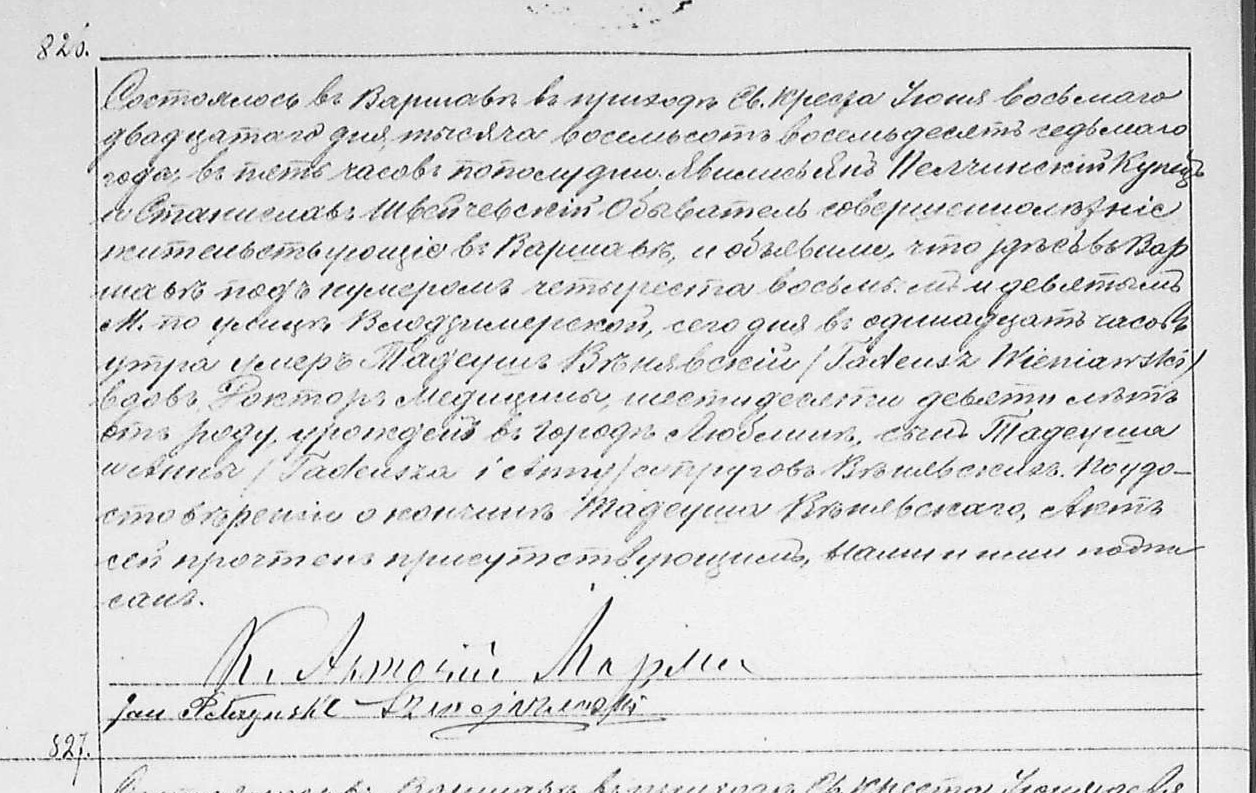 826.
Состоялось въ Варшавѣ въ приходѣ Св. Креста Іюня восьмаго
двадцатаго дня, тысяча восемьсотъ восемьдесятъ седьмаго
года, въ пять часовъ пополудни. Явились Янъ Пелчинскій Купецъ
и Станиславъ Швейчевскій Обыватель совершеннолѣтніе
жительствующіе въ Варшавѣ, и объявили, что здѣсь въ Вар
шавѣ подъ нумеромъ четыреста восьмымъ и девятымъ
М. по улицѣ Влодзимерской, сего дня въ одинадцать часовъ
утра умеръ Тадеушъ Вѣнявскій /Tadeusz Wieniawski/
вдовъ, Докторъ Медицины, шестидесяти девяти лѣтъ
отъ роду, урожденъ въ городѣ Люблинѣ, сынъ Тадеуша
и Анны /Tadeusza i Anny/ супруговъ Вѣнявскихъ. По удо-
стовѣреніи о кончинѣ Тадеуша Вѣнявскаго, Актъ
сей прочтенъ присутствующимъ, Нами и ими подпи
санъ.
К. Антоній
Jan Pełczyński Szwejczewski
827.